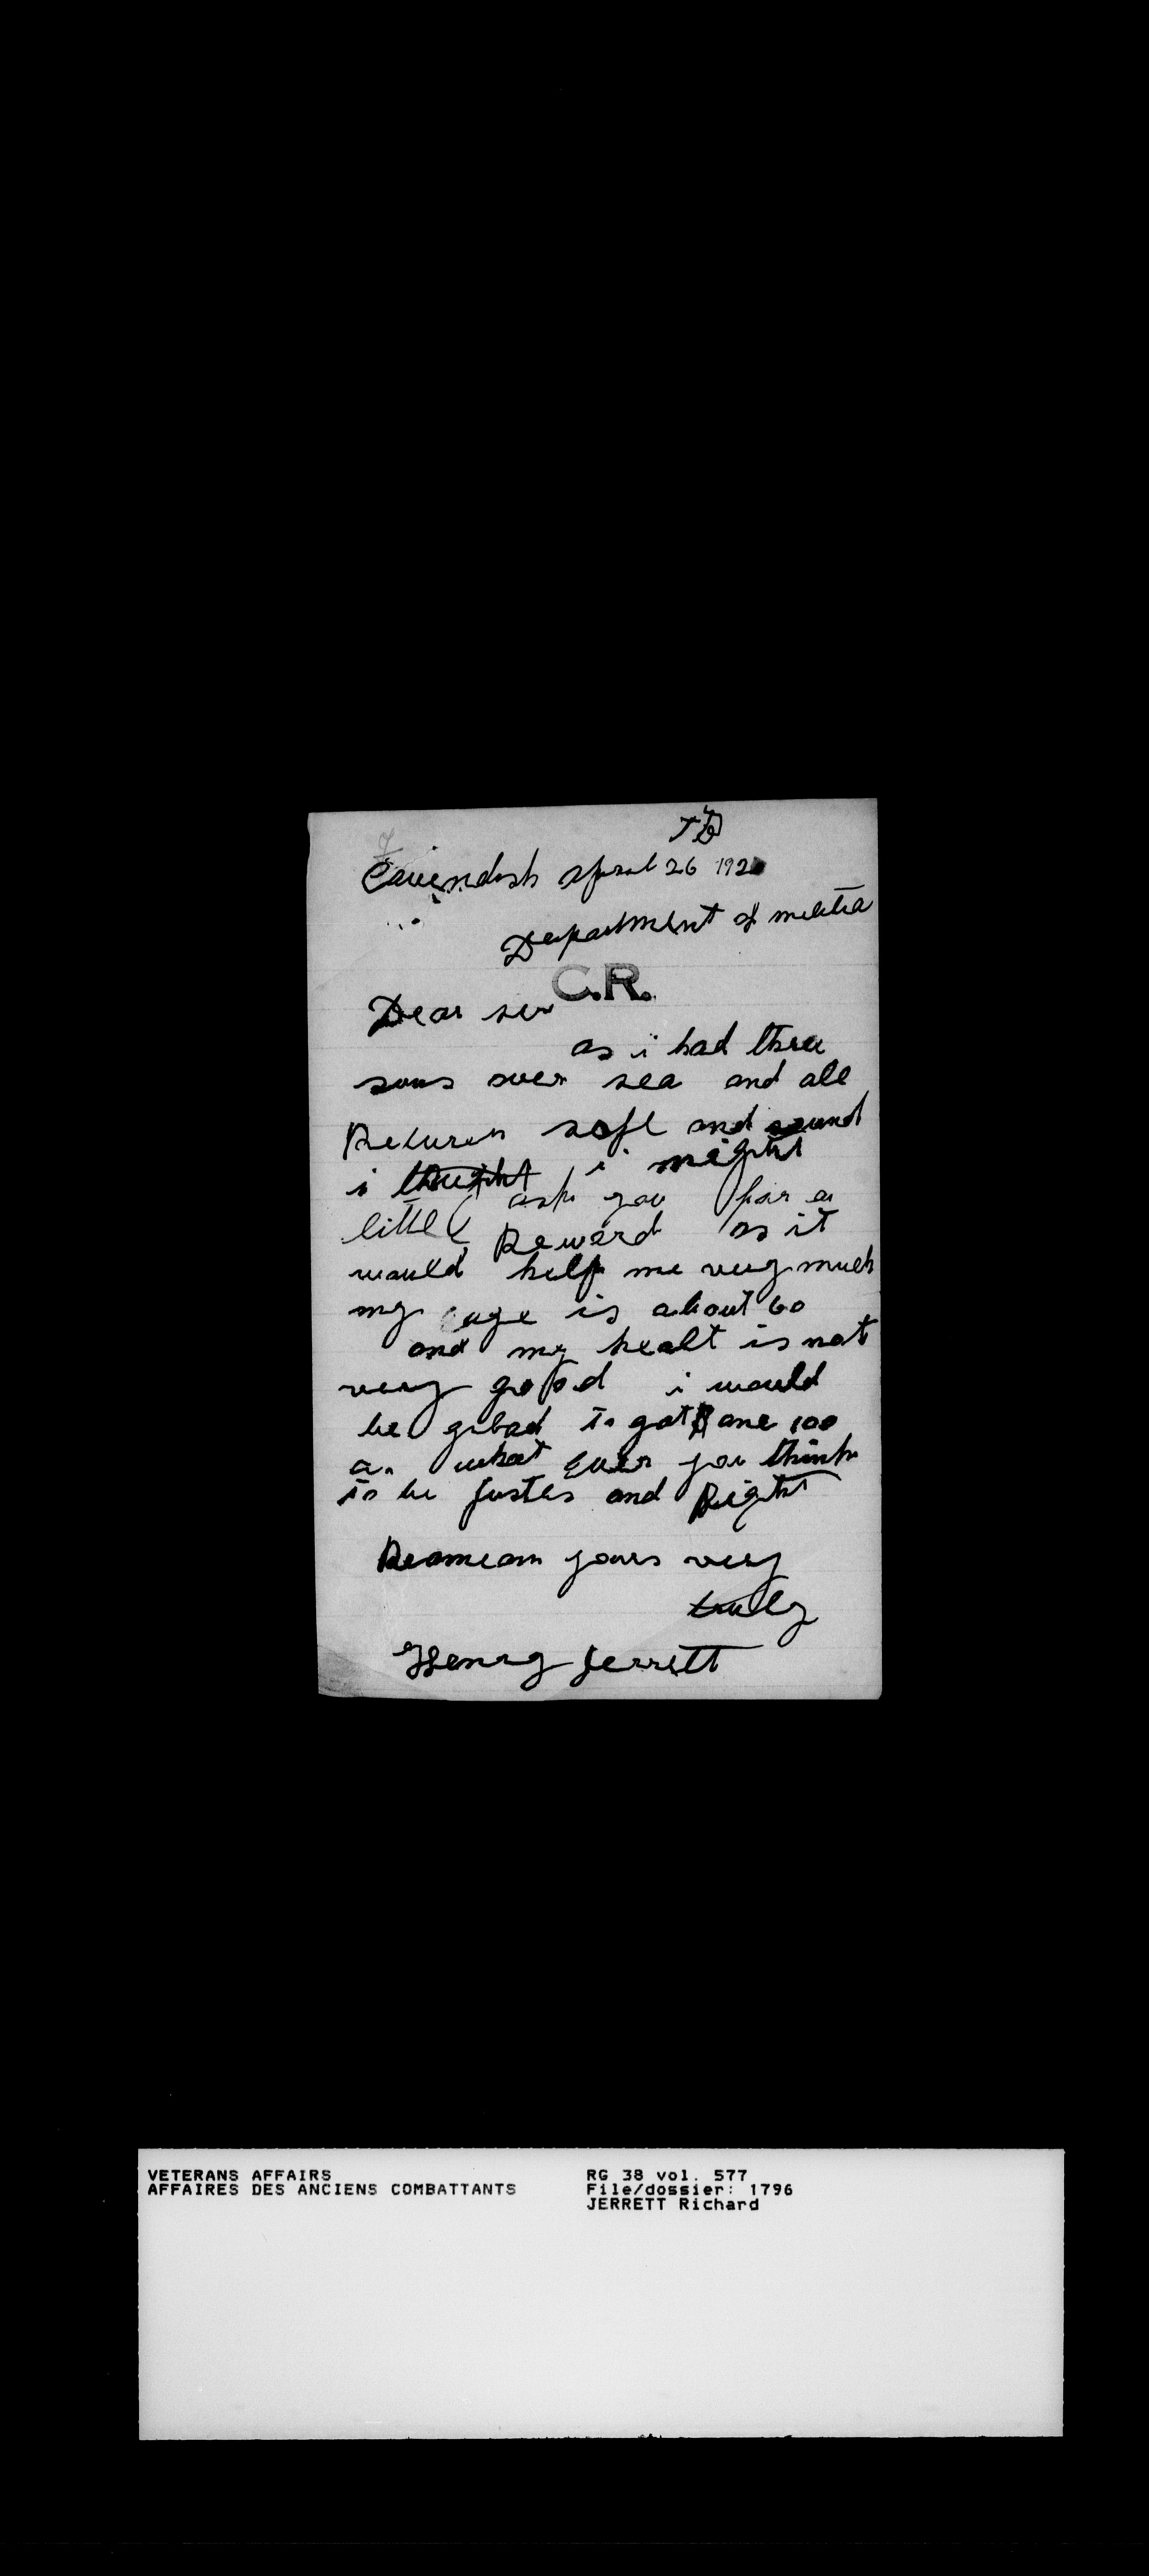 Cavendish April 26 192
Department of melitia
C.R.
Dear ser
as i had three
sons over sea and all
Return safe and sound
i thought i might
ask you for a
little Reward as it
would help me very much
my age is about 60
and my healt is not
very good i would
be glad to get one 100
or what ever you think
to be justes and Right
Remean yours very
truly
Henry Jerrett
VETERANS AFFAIRS
AFFAIRES DES ANCIENS COMBATTANTS
RG 38 vol. 577
File/dossier: 1796
JERRETT Richard